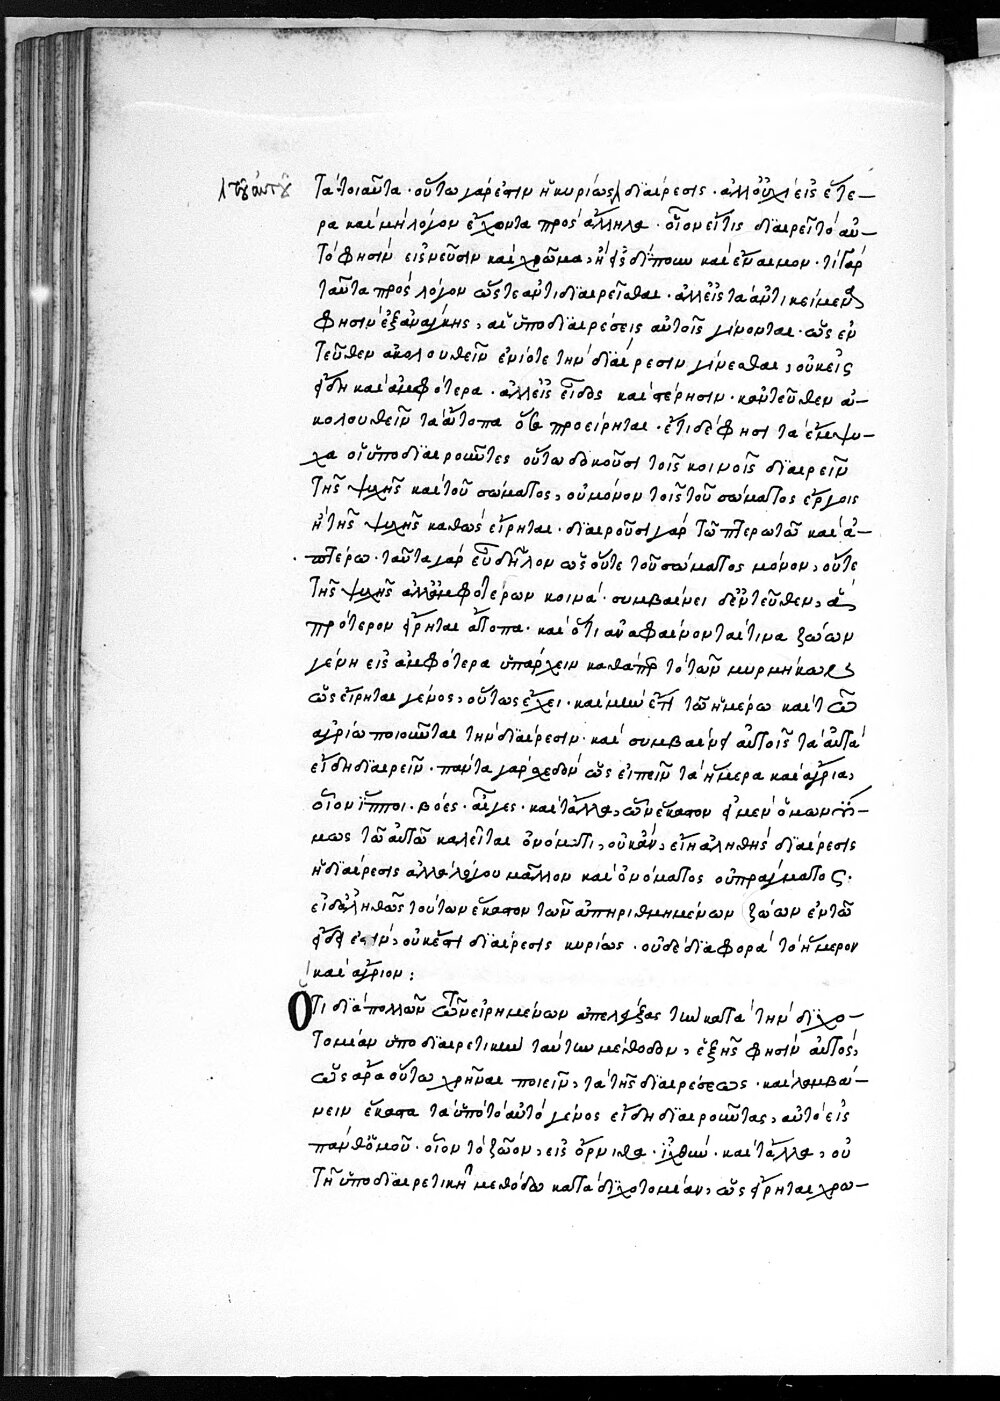 τοῦ αὐτοῦ
τὰ τοιαῦτα· οὕτω γάρ ἐστιν ἡ κυρίως διαίρεσις· ἀλλ' οὐχὶ εἰς ἕτε-
ρα καὶ μὴ λόγον ἔχοντα πρὸς ἄλληλα· οἷον εἴ τις διαιρεῖ τὸ αὐ-
τό φησιν εἰς νεῦσιν καὶ χρῶμα, ἢ εἰς δίπουν καὶ ἔναιμον· τί γὰρ
ταῦτα πρὸς λόγον ὥστε ἀντιδιαιρεῖσθαι· ἀλλ' εἰς τὰ ἀντικείμενα
φησὶν ἐξ ἀνάγκης, αἱ ὑποδιαιρέσεις αὐτοῖς γίνονται· ὡς ἐν
τεῦθεν ἀκολουθεῖν ἐνίοτε τὴν διαίρεσιν γίνεσθαι, οὐκ εἰς
εἴδη καὶ ἀμφότερα· ἀλλ' εἰς εἶδος καὶ στέρησιν· κἀντεῦθεν ἀ-
κολουθεῖν τὰ ἄτοπα ὅσα προείρηται· ἔτι δέ φησι τὰ ἔμψυ-
χα οἱ ὑποδιαιροῦντες οὕτω δοκοῦσι τοῖς κοινοῖς διαιρεῖν
τῆς ψυχῆς καὶ τοῦ σώματος, οὐ μόνον τοῖς τοῦ σώματος ἔργοις
ἢ τῆς ψυχῆς καθὼς εἴρηται· διαιροῦσι γὰρ τῶ πτερωτῶ καὶ ἀ-
πτέρω· ταῦτα γὰρ εὔδηλον ὡς οὔτε τοῦ σώματος μόνον, οὔτε
τῆς ψυχῆς ἀλλ' ἀμφοτέρων κοινά· συμβαίνει δ' ἐντεῦθεν, ἃ
πρότερον εἴρηται ἄτοπα· καὶ ὅτι ἀναφαίνονταί τινα ζώων
γένη εἰς ἀμφότερα ὑπάρχειν καθάπερ τὸ τῶν μυρμήκων
ὡς εἴρηται γένος, οὕτως ἔχει· καὶ μὴν ἔτι τῶ ἡμέρω καὶ τῶ
ἀγρίω ποιοῦνται τὴν διαίρεσιν· καὶ συμβαίνει αὐτοῖς τὰ αὐτὰ
εἴδη διαιρεῖν· πάντα γὰρ σχεδὸν ὡς εἰπεῖν τὰ ἥμερα καὶ ἄγρια,
οἷον ἵπποι· βόες· αἶγες· καὶ τἄλλα, ὧν ἕκαστον εἰ μὲν ὁμωνύ-
μως τῶ αὐτῶ καλεῖται ὀνόματι, οὐκ ἂν, εἴη ἀληθὴς διαίρεσις
ἡ διαίρεσις ἀλλὰ λόγου μᾶλλον καὶ ὀνόματος οὐ πράγματος·
εἰ δ' ἀληθῶς τούτων ἕκαστον τῶν ἀπηριθμημένων ζώων ἐν τῶ
εἴδει ἐστίν, οὐκ ἔστι διαίρεσις κυρίως· οὐδὲ διαφορὰ τὸ ἥμερον
καὶ ἄγριον:
Ὅτι διὰ πολλῶν τῶν εἰρημένων ἀπελέγξας τὴν κατὰ τὴν διχο-
τομίαν ὑποδιαιρετικὴν ταύτην μέθοδον, ἑξῆς φησὶν αὐτὸς,
ὡς ἄρα οὕτω χρῆναι ποιεῖν, τὰ τῆς διαιρέσεως· καὶ λαμβά-
νειν ἕκαστα τὰ ὑπὸ τὸ αὐτὸ γένος εἴδη διαιροῦντας, αὐτὸ εἰς
πάνθ' ὁμοῦ· οἷον τὸ ζῶον, εἰς ὄρνιθα· ἰχθύν· καὶ τἄλλα, οὐ
τῆ ὑποδιαιρετικῆ μεθόδω κατὰ διχοτομίαν, ὡς εἴρηται χρω-